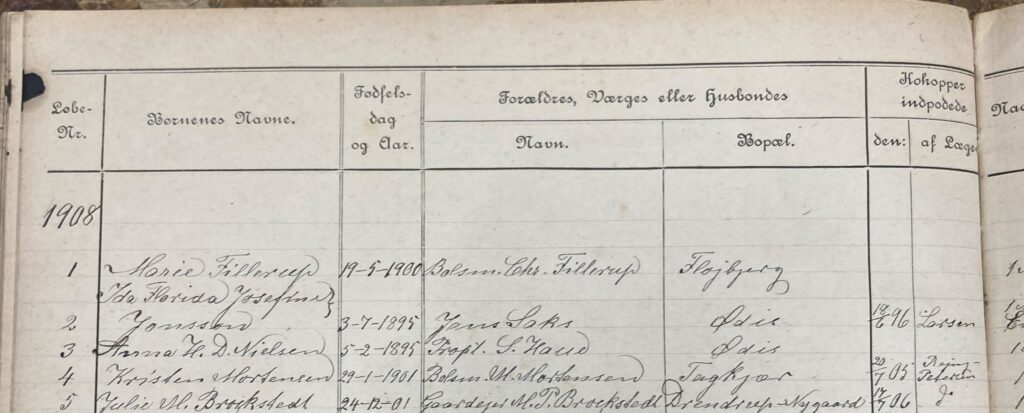 Løbe-Nr. Børnenes Navne. Fødsels-dag og Aar. Forældres, Værges eller Husbondes Navn. Bopæl. Kokopper indpodede den: af Læge
1908
1 Marie Fillerup 19-5-1900 Bolsm. Chr. Fillerup Fløjbjerg
Ida Florida Josefine
2 Jonsson 3-7-1895 Jens Saks Ødis 96 Larsen
3 Anna H. D. Nielsen 5-2-1895 Propt. S. Ødis
4 Kristen Mortensen 29-1-1901 Bolsm. M. Mortensen Tagkjær 20/7 05 Petersen
5 Julie M. Brockstedt 24-12-01 Gaardejer M. P. Brockstedt Drendrup-Nygaard 17/7 06